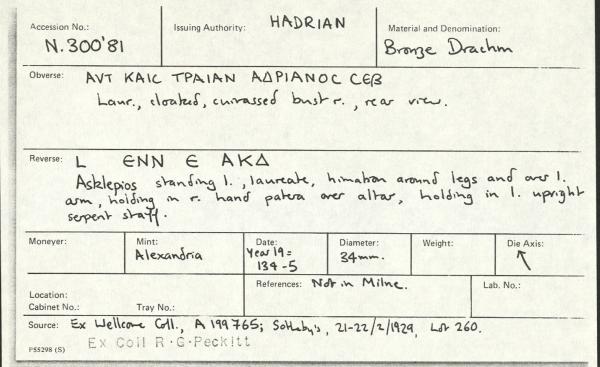 Accession No.: N.300'81
Issuing Authority: HADRIAN
Material and Denomination: Bronze Drachm
Obverse: ΑVΤ ΚΑΙϹ ΤΡΑΙΑΝ ΑΔΡΙΑΝΟϹ ϹЄΒ
Laur., cloaked, cuirassed bust r., rear view.
Reverse: L ЄΝΝ Є ΑΚΔ
Asklepios standing l., laureate, himation around legs and over l.
arm, holding in r. hand patera over altar, holding in l. upright
serpent staff.
Moneyer:
Mint: Alexandria
Date: Year 19 =
134-5
Diameter: 34mm.
Weight:
Die Axis: ↖
Location:
Cabinet No.: Tray No.:
References: Not in Milne.
Lab. No.:
Source: Ex Wellcome Coll., A 199765; Sotheby's, 21-22/2/1929, Lot 260.
Ex Coll R.G.Peckitt
P55298 (S)